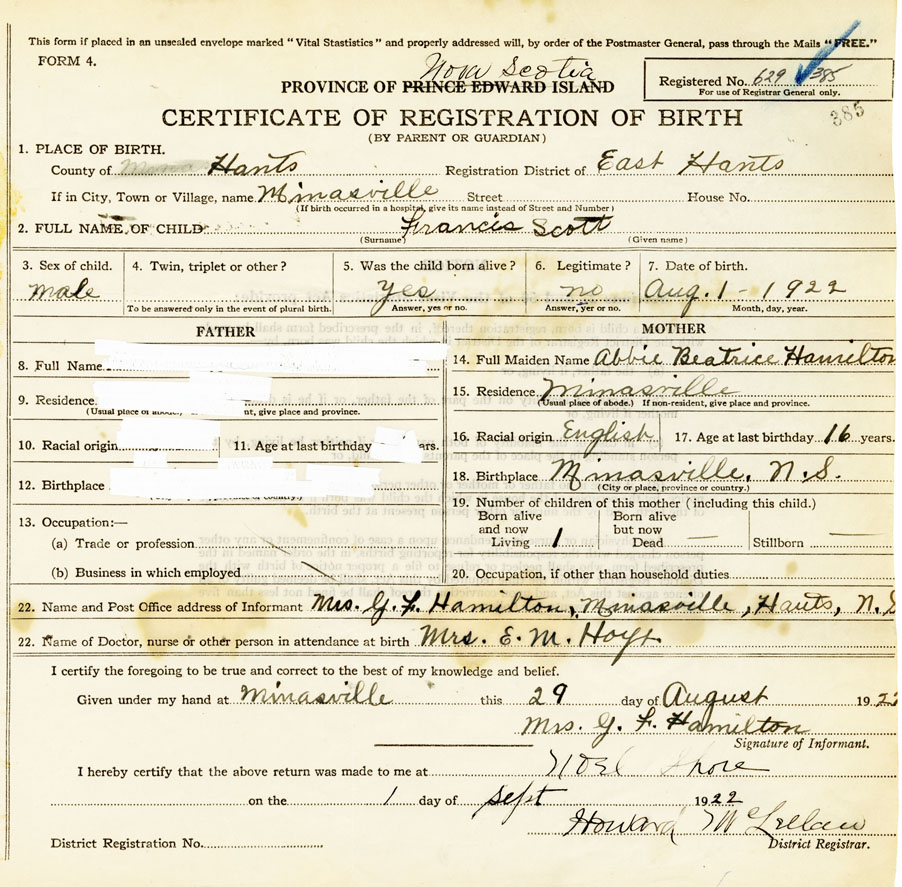 This form if placed in an unsealed envelope marked "Vital Stastistics" and properly addressed will, by order of the Postmaster General, pass through the Mails "FREE."
FORM 4.
Nova Scotia
PROVINCE OF PRINCE EDWARD ISLAND
Registered No. 629 385
For use of Registrar General only.
385
CERTIFICATE OF REGISTRATION OF BIRTH
(BY PARENT OR GUARDIAN)
1. PLACE OF BIRTH.
County of Hants Registration District of East Hants
If in City, Town or Village, name Minasville Street House No.
(If birth occurred in a hospital, give its name instead of Street and Number)
2. FULL NAME OF CHILD Francis Scott
(Surname) (Given name)
3. Sex of child. 4. Twin, triplet or other? 5. Was the child born alive? 6. Legitimate? 7. Date of birth.
male yes no Aug. 1 - 1922
To be answered only in the event of plural birth. Answer, yes or no. Answer, yes or no. Month, day, year.
FATHER MOTHER
8. Full Name 14. Full Maiden Name Abbie Beatrice Hamilton
9. Residence. 15. Residence. Minasville
(Usual place of abode.) nt, give place and province. (Usual place of abode.) If non-resident, give place and province.
10. Racial origin 11. Age at last birthday ars. 16. Racial origin English 17. Age at last birthday 16 years.
12. Birthplace 18. Birthplace Minasville, N.S.
(City or place, province or country.)
13. Occupation:— 19. Number of children of this mother (including this child.)
Born alive and now Living 1 Born alive but now Dead — Stillborn —
(a) Trade or profession
(b) Business in which employed 20. Occupation, if other than household duties
22. Name and Post Office address of Informant Mrs. G. F. Hamilton, Minasville, Hants, N.S
22. Name of Doctor, nurse or other person in attendance at birth Mrs. E. M. Hoyt
I certify the foregoing to be true and correct to the best of my knowledge and belief.
Given under my hand at Minasville this 29 day of August 1922
Mrs. G. F. Hamilton
Signature of Informant.
I hereby certify that the above return was made to me at Noel Shore
on the 1 day of Sept 1922
Howard McLellan
District Registration No. District Registrar.